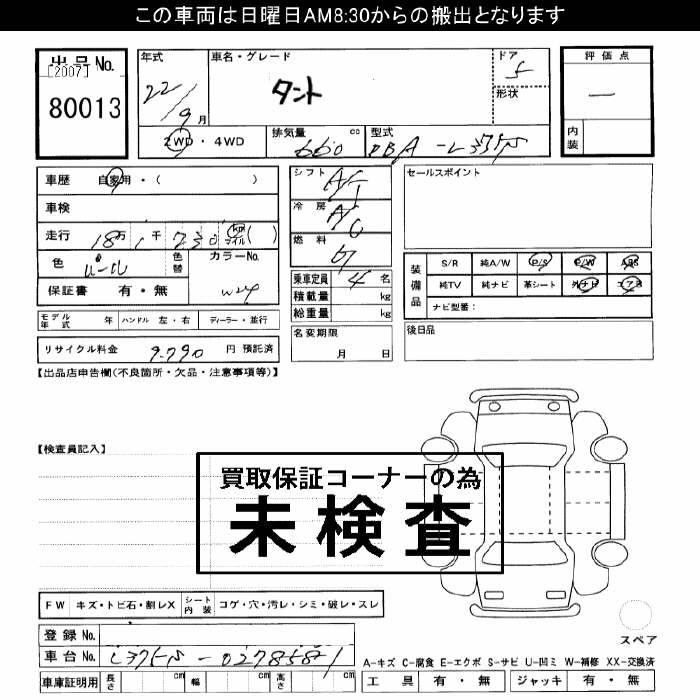 この車両は日曜日AM8:30からの搬出となります
出品No.
[2007]
80013
年式
22/9月
車名・グレード
タント
ドア
5
形状
評価点
—
内装
2WD・4WD
排気量 cc
660
型式
DBA-L375S
車歴 自家用・( )
車検
走行 18万1千230 km マイル ( )
色 パール
色替
カラーNo.
W24
保証書 有・無
シフト
冷房
燃料
乗車定員 4名
積載量 kg
総重量 kg
セールスポイント
装備品
S/R 純A/W P/S P/W ABS
純TV 純ナビ 革シート 外ナビ エアB
ナビ型番:
モデル年式 年 ハンドル 左・右 ディーラー・並行
リサイクル料金 9,790 円 預託済
名変期限
月 日
後日品
【出品店申告欄(不良箇所・欠品・注意事項等)】
【検査員記入】
買取保証コーナーの為
未検査
FW キズ・トビ石・割レX シート内装 コゲ・穴・汚レ・シミ・破レ・スレ
スペア
登録No.
車台No. L375S-0278587
A-キズ C-腐食 E-エクボ S-サビ U-凹ミ W-補修 XX-交換済
車庫証明用 長さ cm 幅 cm 高さ cm
工具 有・無 ジャッキ 有・無